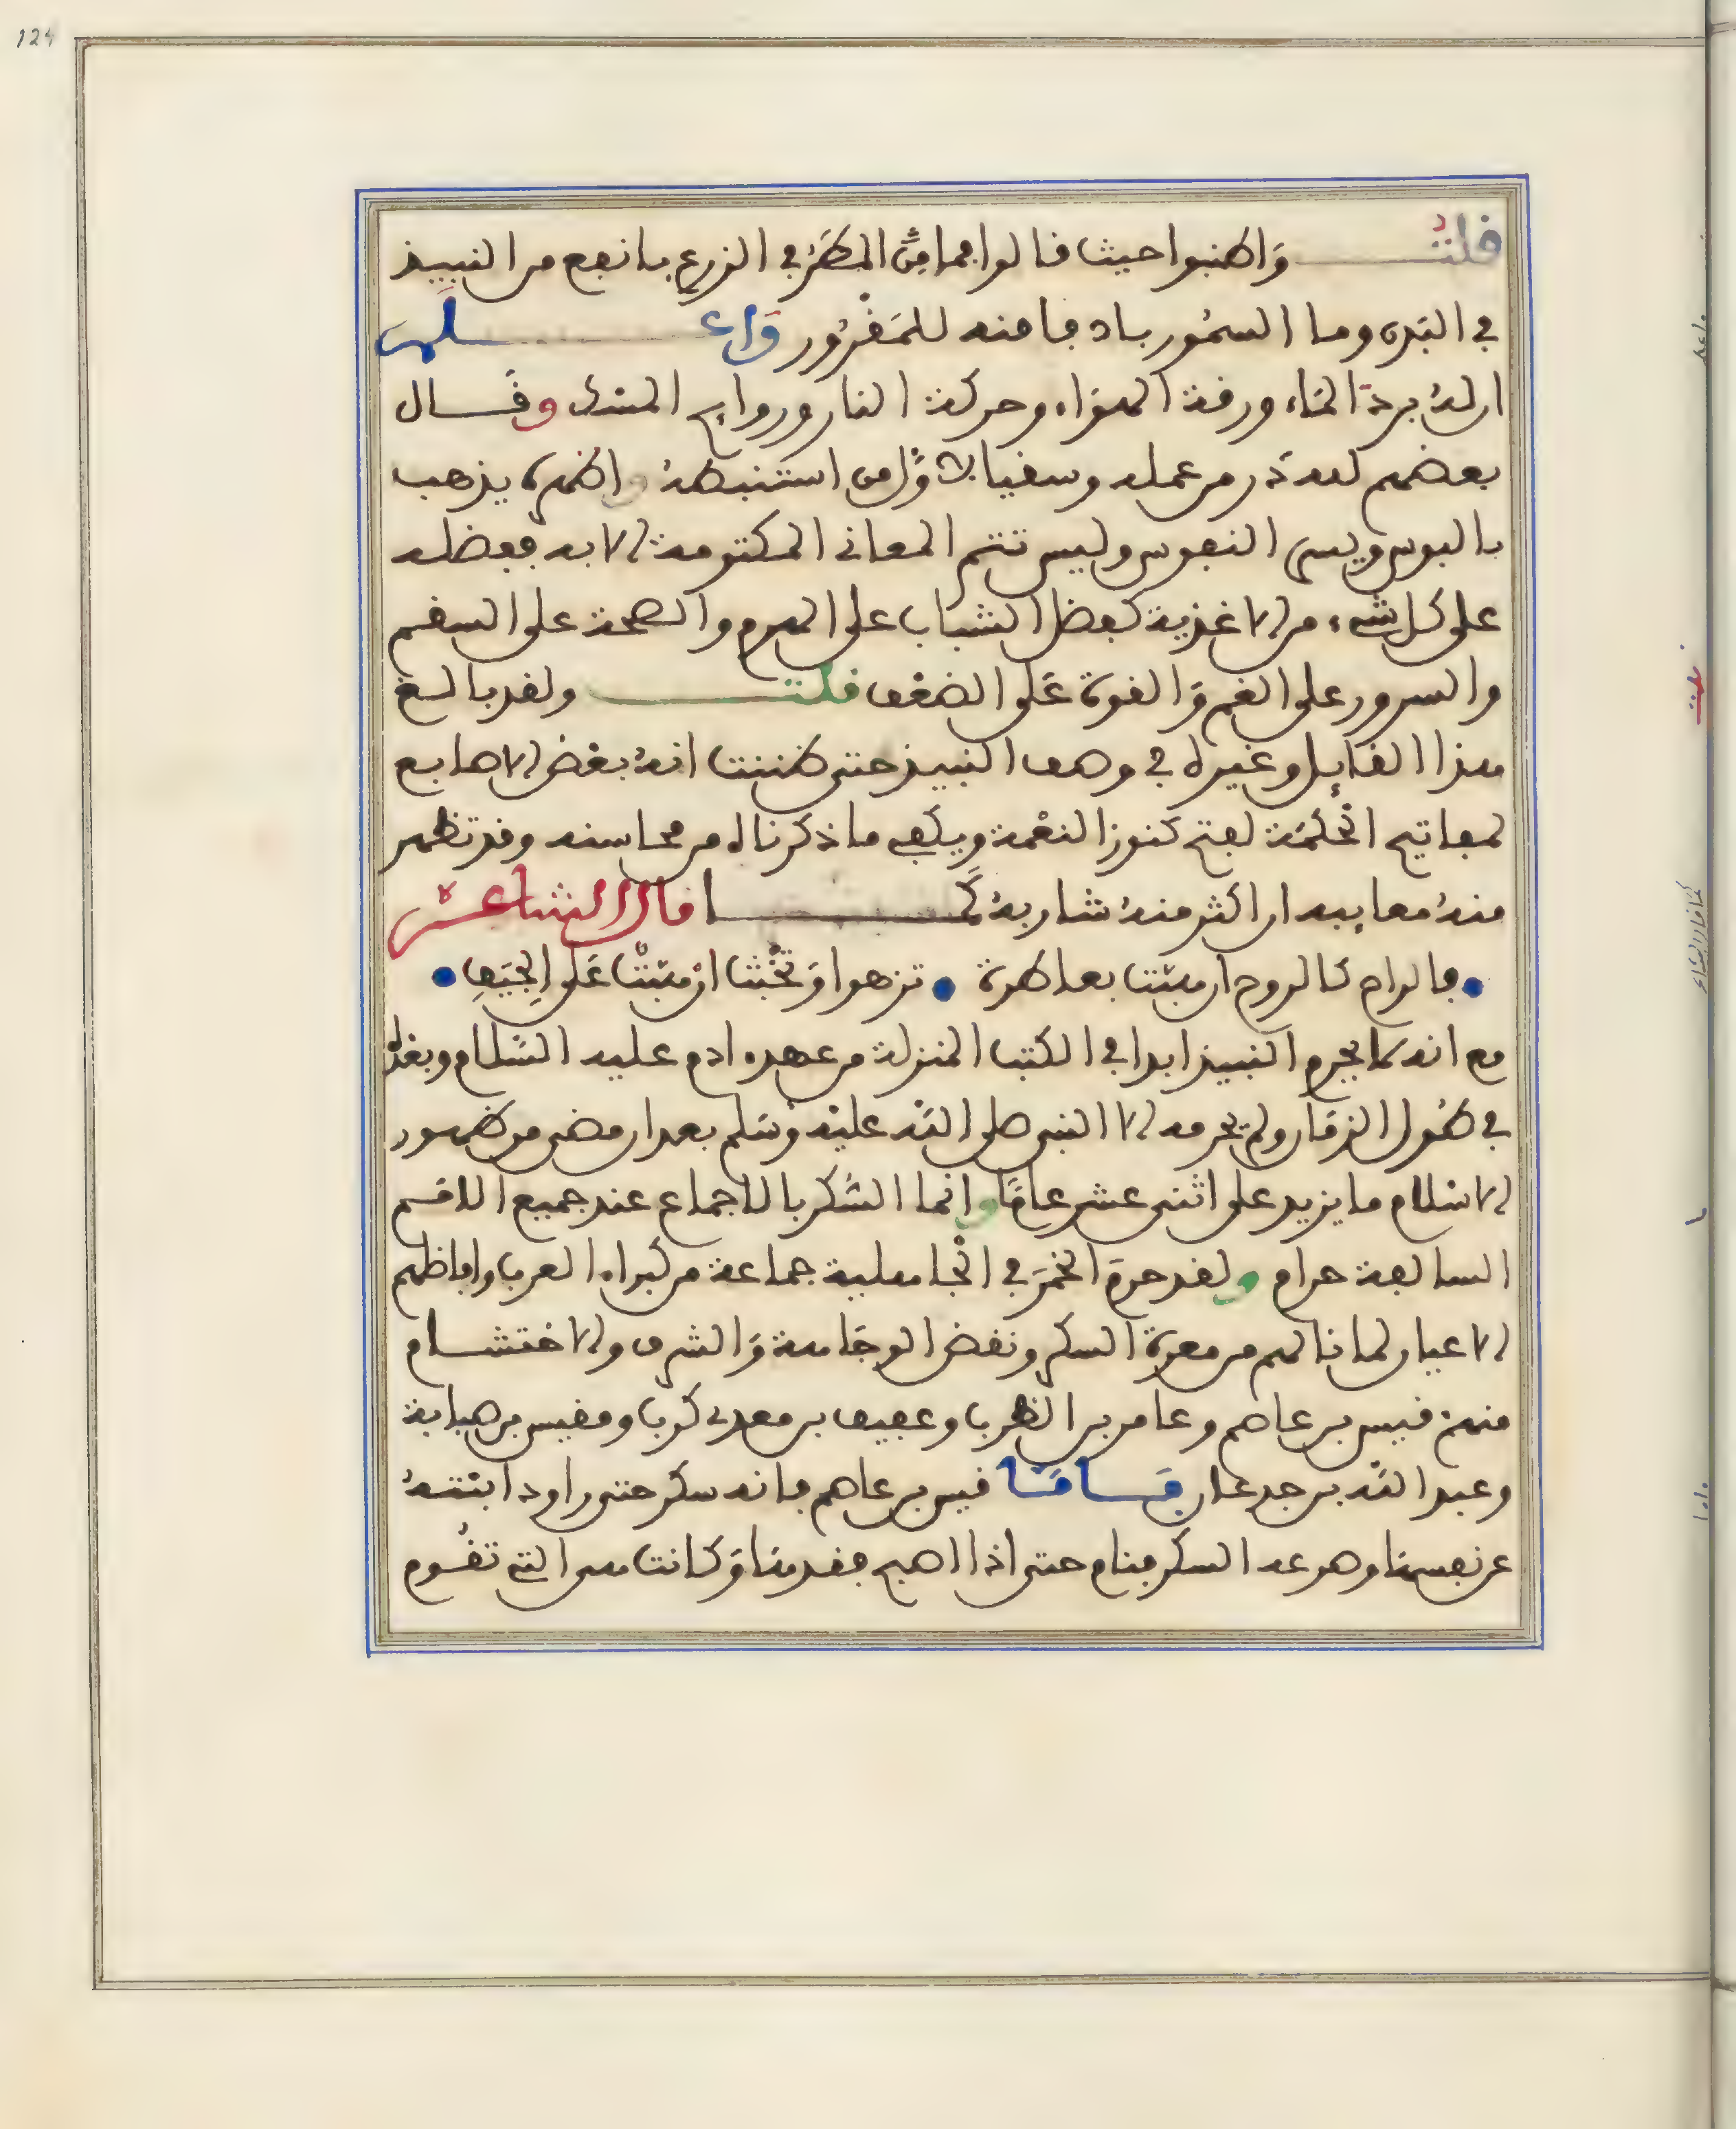 124
قلتُ وَاطنبوا حيث قالوا فما مَرُّ المطَرُ في الزرع بانفع من النبيذ
في البَدن وما السمُّور بادفا منه للمَقرُور وَاعلم
ان لهُ بردَ المَاء ورقة الهوَاء وحركة النار وروايح المسك وقَال
بعضهم لله در من عمله وسقيا لاوَّل من استنبطهُ واظهره يذهب
بالبوس ويسر النفوس وليس تتم المعاني المكتومة الا به ففضله
على كل شيء من الاغذية كفضل الشباب على الهرم والصحة على السقم
والسرور على الغم وَالقوة عَلى الضعْف قلتُ ولقد بالغ
هذا القايل وغيره في وصف النبيذ حتى ظننت انهُ بعْض الاصابع
لمفاتيح الحْكمَة لفتح كنوز النعْمة ويكفي ما ذكرناه من محاسنه وقد تظهر
منهُ معايبه ان اكثر منهُ شاربهُ كَما قال الشاعر
• فالراح كالروح ان مبتت بعاطرة • تزهوا وَتخْبث ان مبتْت عَلى الجِيَفِ •
مع انه لم يحرم النبيذ ابدا في الكتب المنزلة من عهد ادم عليه السَّلام وبعدَهُ
في طُول الزمَان ولم يحرمه الا النبي صلى اللَّه عليْه وَسَلم بعد ان مضى من ظهور
الاسْلام ما يزيد على اثنى عشر عامًا وانما السُّكر بالاجماع عند جميع الامم
السالفة حرام ولقد حرمَ الخمرَ في الجْاهلية جماعة من كبراء العرب وافاضلهم
الاعيان لما نالهم من معرة السكر ونقض الوجَاهة وَالشرف والاحتشام
منهم قيس بن عاصم وعامر بن الظرب وعفيف بن معدي كرب ومقيس بن صبابة
وعبد اللَّه بن جدعان فَامَّا قيس بن عاصم فانه سكر حتى راود ابنتهُ
عن نفسها وهو عند السكر فنام حتى اذا اصبح فقدهَا وَكانت هي التي تقُوم